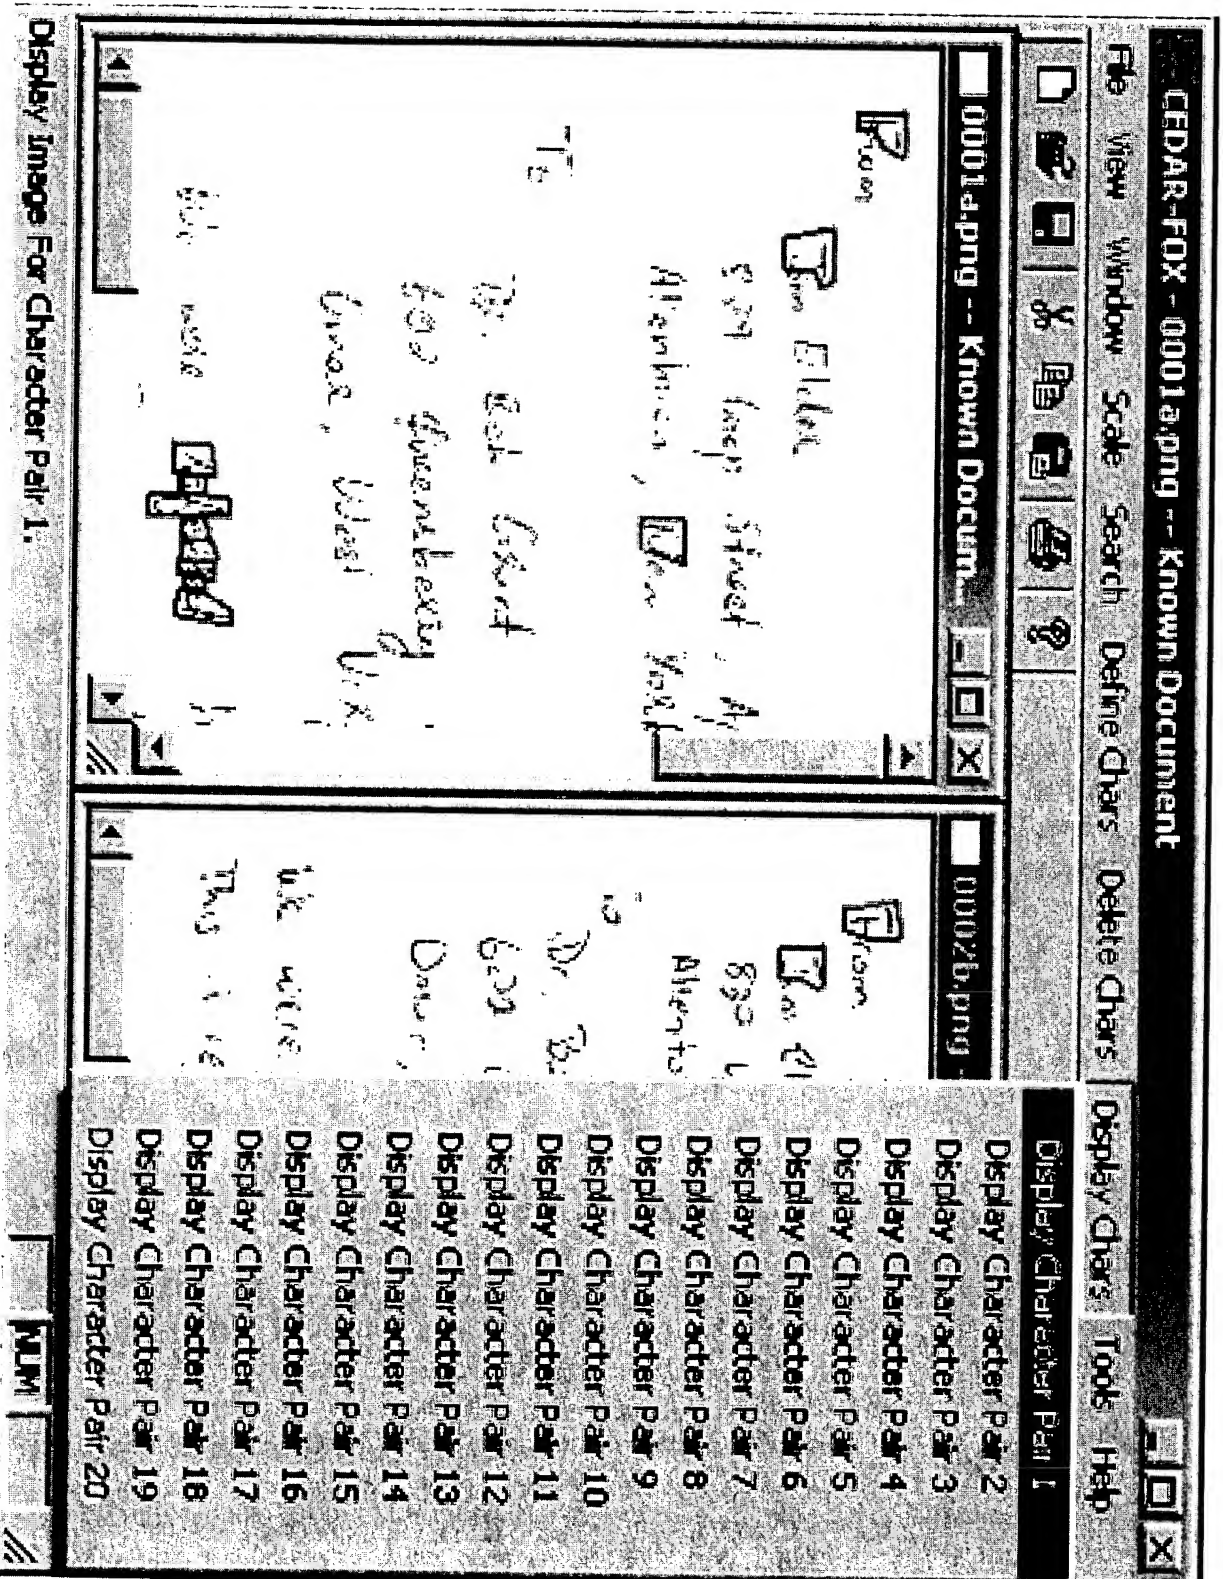 CEDAR-FOX - 0001a.png -- Known Document
File View Window Scale Search Define Chars Delete Chars Display Chars Tools Help
0001a.png -- Known Docum...
From
Jim Elder
829 Loop Street, A
Allentown, New York
To
Dr. Bob Grant
602 Queensberry
Omar, West Vir
We were referred
0002b.png -
From
Jim El
829 L
Allento
To
Dr. Bo
602
Omar,
We were
This is
Display Character Pair 1
Display Character Pair 2
Display Character Pair 3
Display Character Pair 4
Display Character Pair 5
Display Character Pair 6
Display Character Pair 7
Display Character Pair 8
Display Character Pair 9
Display Character Pair 10
Display Character Pair 11
Display Character Pair 12
Display Character Pair 13
Display Character Pair 14
Display Character Pair 15
Display Character Pair 16
Display Character Pair 17
Display Character Pair 18
Display Character Pair 19
Display Character Pair 20
Display Image For Character Pair 1.
NUM